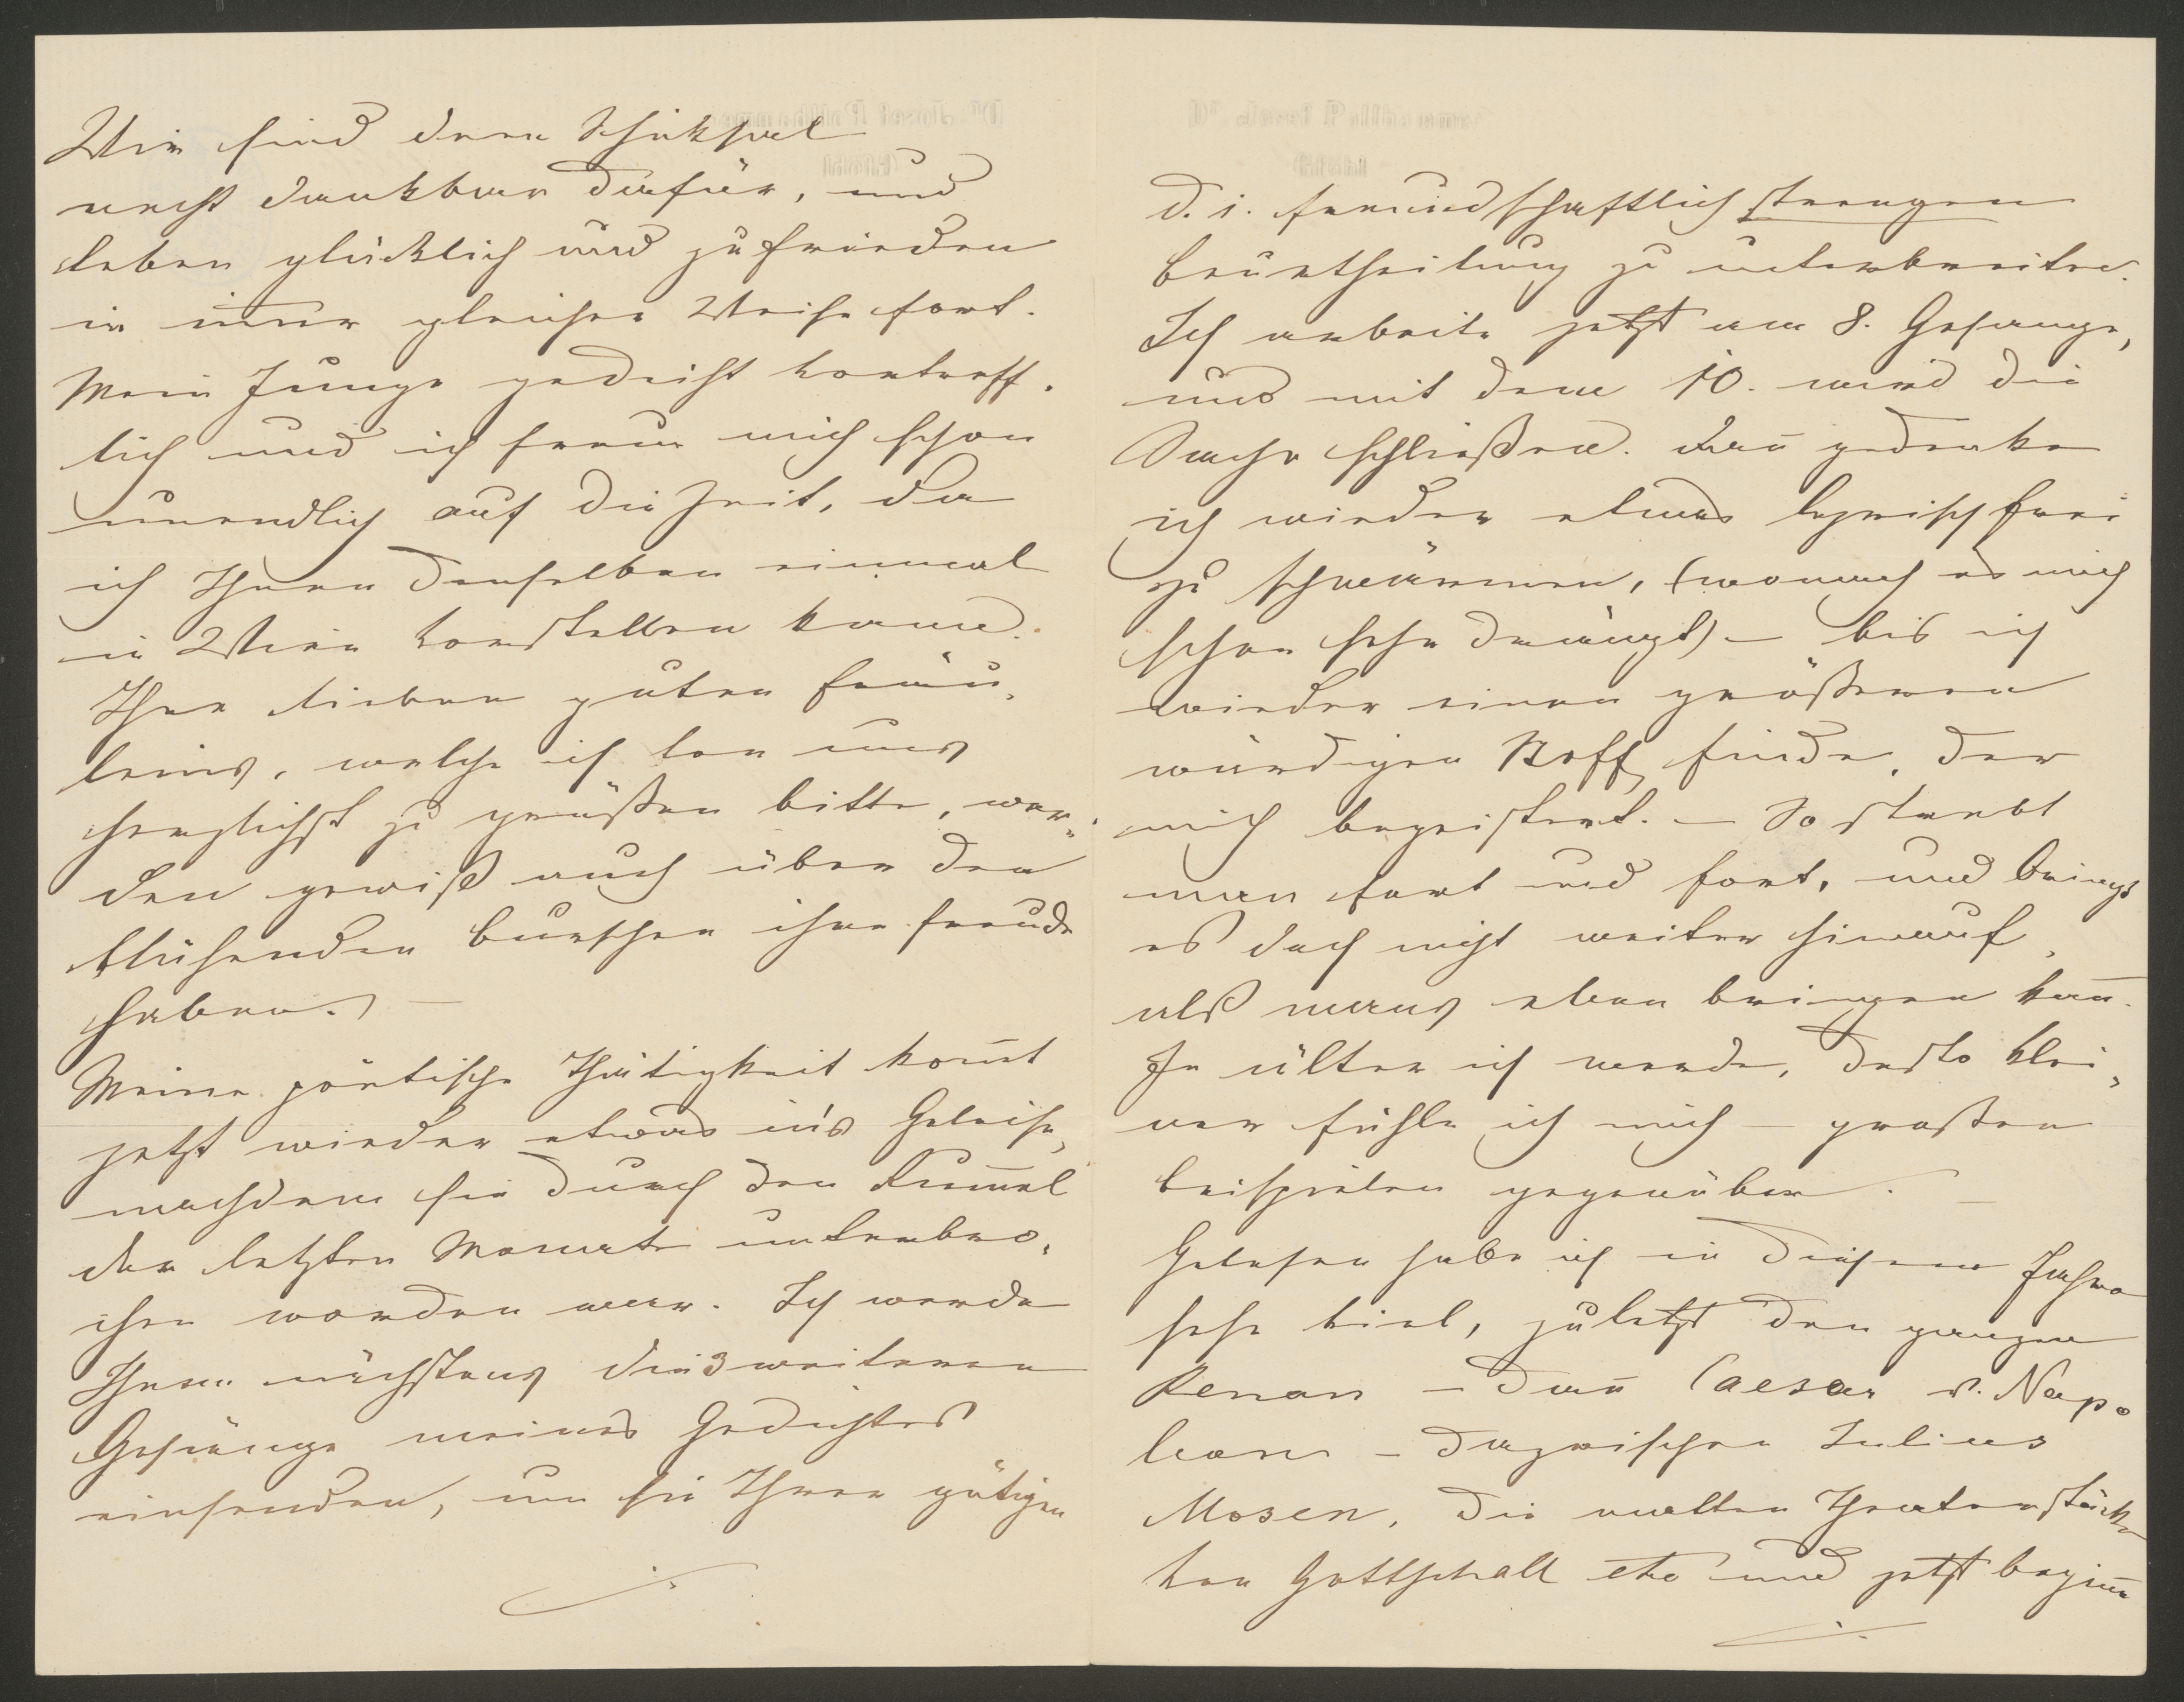 Wir sind dem Schicksal
recht dankbar dafür, und
leben glücklich und zufrieden
in im̅er gleicher Weise fort.
Mein Junge gedeiht vortreff-
lich und ich freue mich schon
unendlich auf die Zeit, da
ich Ihnen denselben einmal
in Wien vorstellen kann.
Ihre lieben guten Fräu-
leins, welche ich von uns
herzlichst zu grüßen bitte, wer-
den gewiß auch über den
blühenden Burschen ihre Freude
haben. —
Meine poëtische Thätigkeit kom̅t
jetzt wieder etwas in's Geleise,
nachdem sie durch den Rum̅el
der letzten Monate unterbro-
chen worden war. Ich werde
Ihnen nächstens die 3 weiteren
Gesänge meines Gedichtes
einsenden, um sie Ihrer gütigen
./.
d. i. freundschaftlich strengen
Beurtheilung zu unterbreiten.
Ich arbeite jetzt am 8. Gesange,
und mit dem 10. wird die
Sache schließen. Dan̅ gedenke
ich wieder etwas lyrisch frei
zu schwärmen, (wonach es mich
schon sehr drängt) — bis ich
wieder einen größeren
würdigen Stoff finde, der
mich begeistert. — So strebt
man fort und fort, und bringt
es doch nicht weiter hinauf,
als mans eben bringen kan̅.
Je älter ich werde, desto klei-
ner fühle ich mich — großen
Beispielen gegenüber. —
Gelesen habe ich in diesem Jahre
sehr viel, zuletzt den ganzen
Renan — dan̅ Caesar v. Napo
leon — dazwischen Julius
Mosen, die alten Theaterstücke
von Gottschall etc und jetzt begin̅e
./.